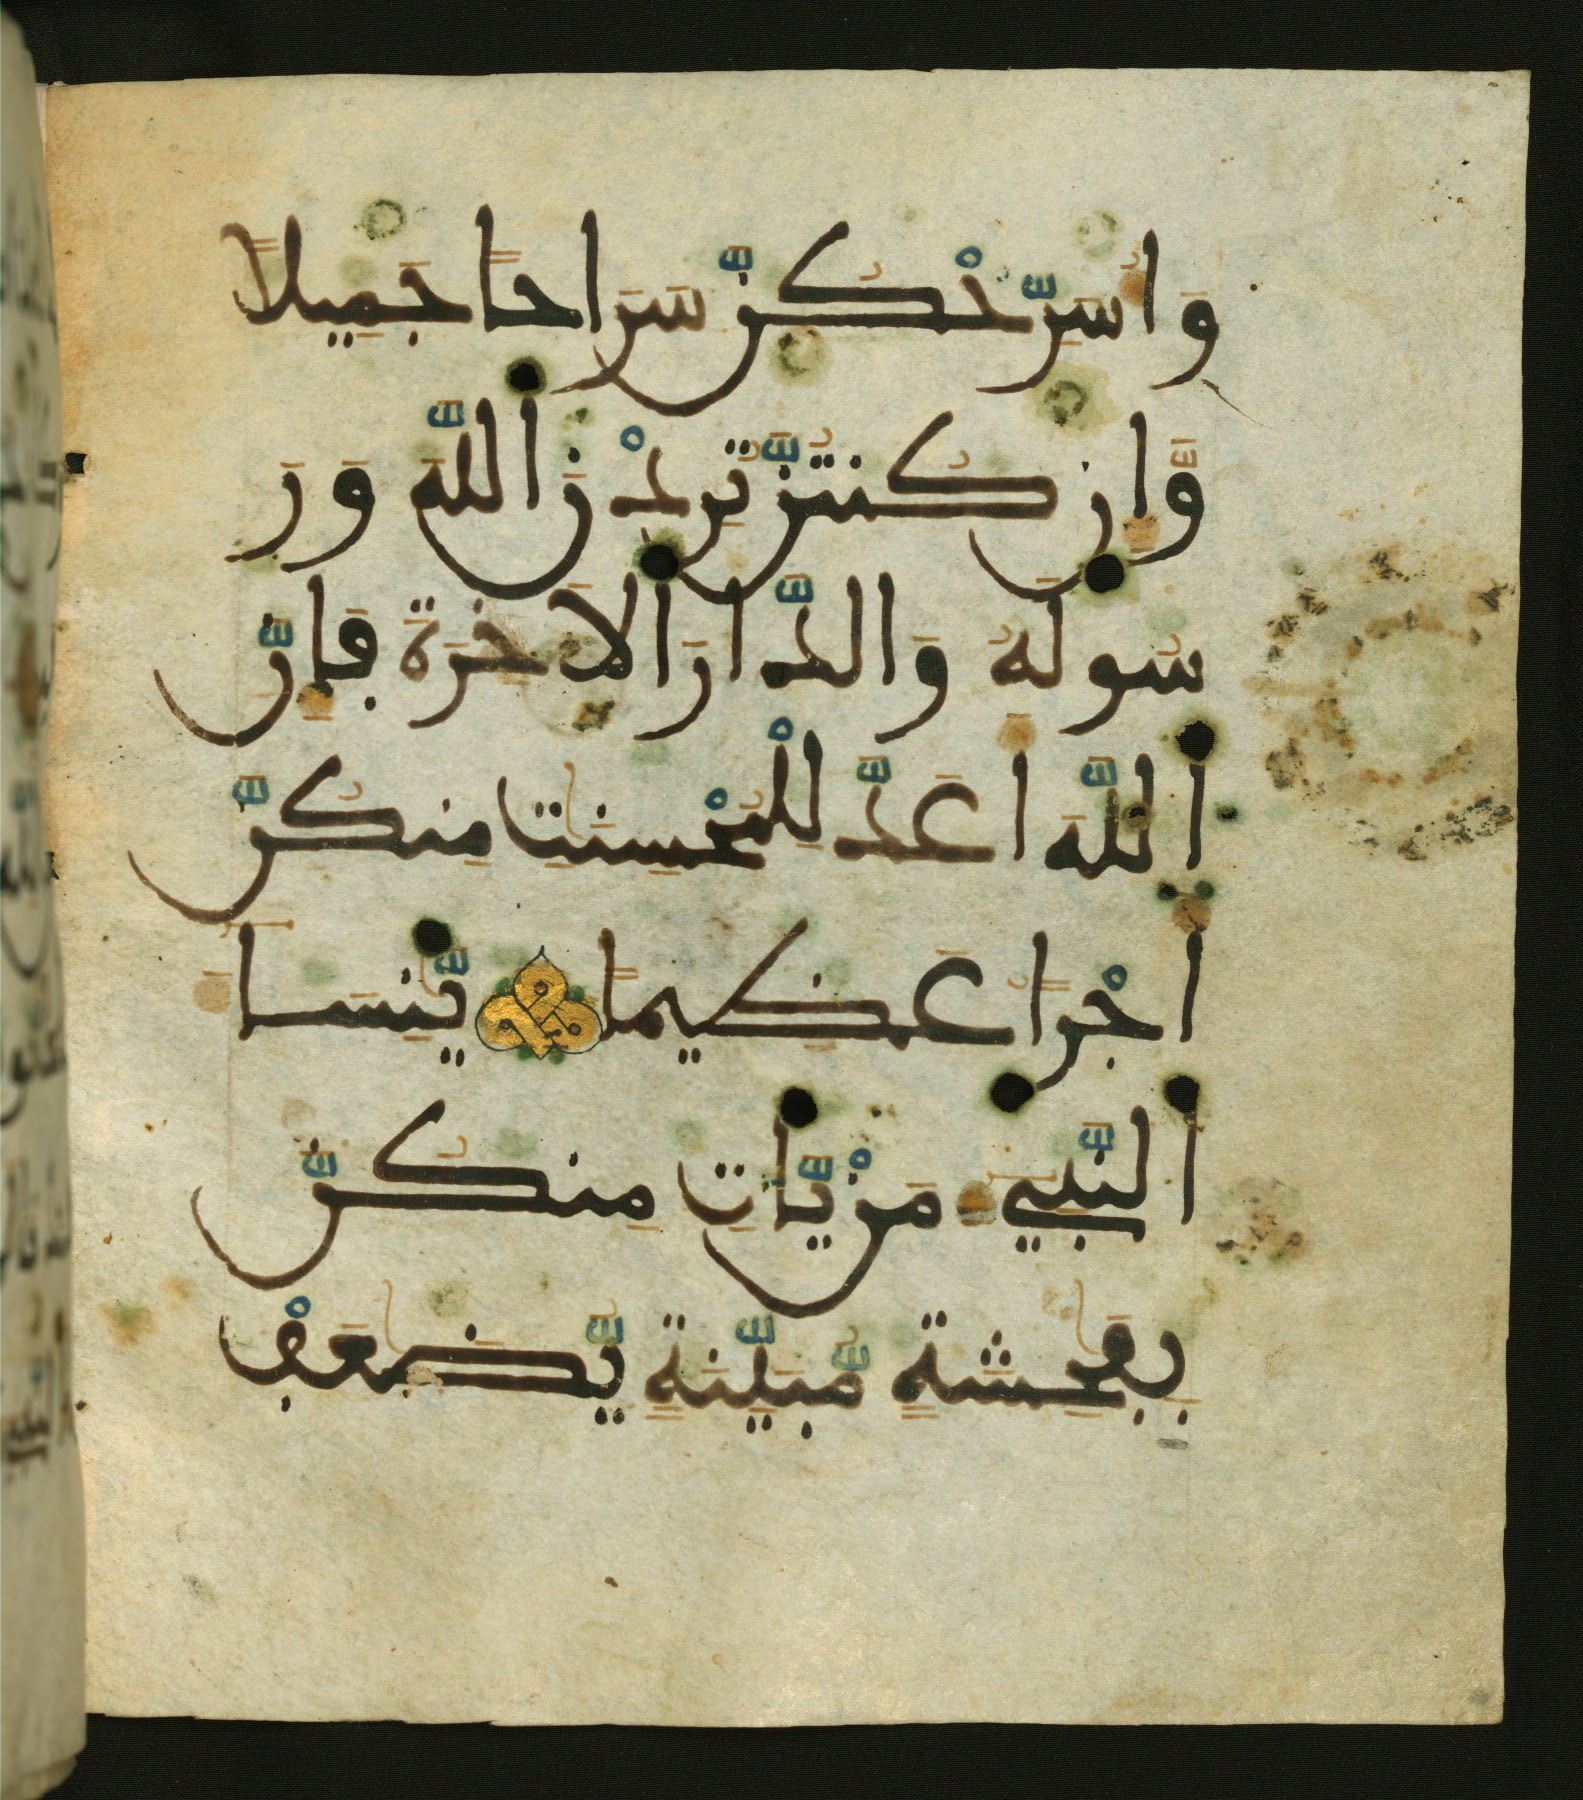 وَأُسَرِّحْكُنَّ سَرَاحًا جَمِيلًا
وَّإِن كُنتُنَّ تُرِدْنَ اَللَّهَ وَرَ
سُولَهُ وَالدَّارَ اَلَاخِرَةَ فَإِنَّ
اَللَّهَ أَعَدَّ لِلْمُحْسِنَٰتِ مِنكُنَّ
أَجْرًا عَظِيمًا يَّٰنِسَآءَ
اَلنَّبِيٓءِ مَنْ يَّاتِ مِنكُنَّ
بِفَٰحِشَةٍ مُّبَيَّنَةٍ يُّضَٰعَفْ